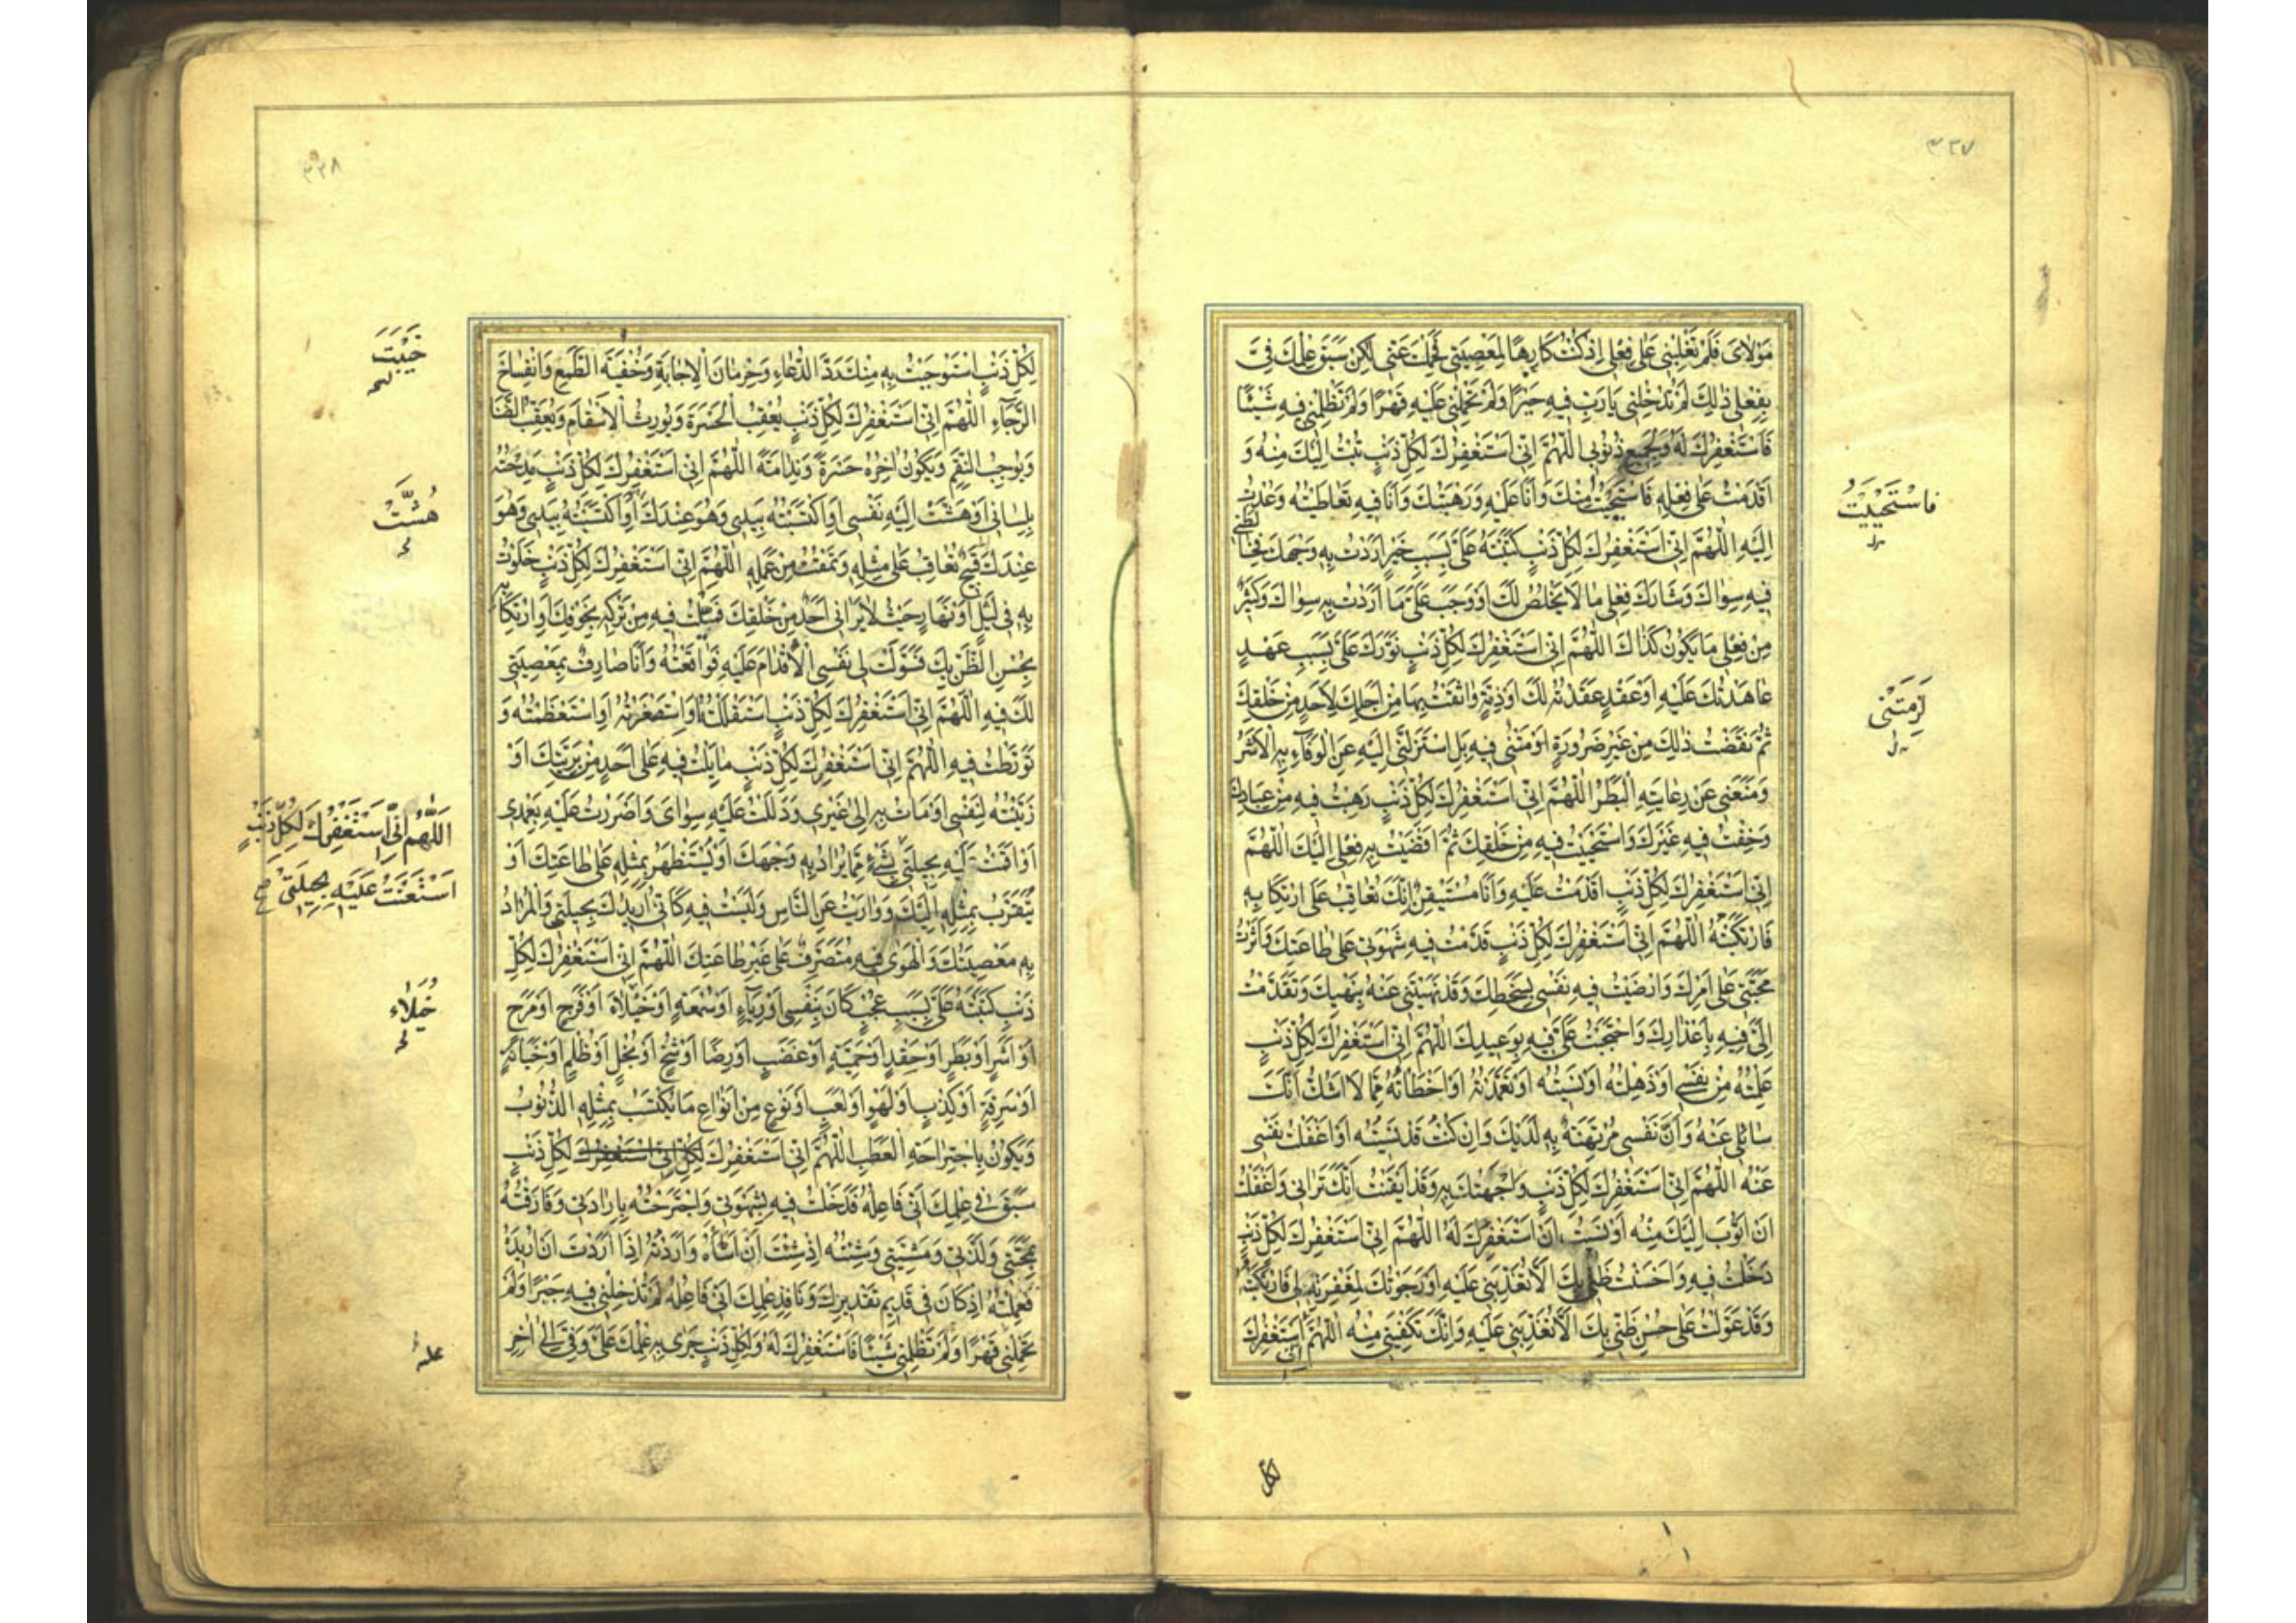 ٣٣٧
مَوْلَايَ فَلَمْ تَغْلِبْنِي عَلَىٰ فِعْلِي اِذْ كُنْتُ كَارِهًا لِمَعْصِيَتِي فَحَلُمْتَ عَنِّي لٰكِنْ سَبَقَ عِلْمُكَ فِيَّ
بِفِعْلِي ذٰلِكَ لَمْ تُدْخِلْنِي يَا رَبِّ فِيهِ جَبْرًا وَلَمْ تَحْمِلْنِي عَلَيْهِ قَهْرًا وَلَمْ تَظْلِمْنِي فِيهِ شَيْئًا
فَاَسْتَغْفِرُكَ لَهُ وَلِجَمِيعِ ذُنُوبِي اَللّٰهُمَّ اِنِّي اَسْتَغْفِرُكَ لِكُلِّ ذَنْبٍ تُبْتُ اِلَيْكَ مِنْهُ وَ
اَقْدَمْتُ عَلَىٰ فِعْلِهِ فَاسْتَحْيَيْتُ مِنْكَ وَاَنَا عَلَيْهِ وَرَهِبْتُكَ وَاَنَا فِيهِ تَعَاطَيْتُهُ وَعُدْتُ
اِلَيْهِ اَللّٰهُمَّ اِنِّي اَسْتَغْفِرُكَ لِكُلِّ ذَنْبٍ كَتَبْتَهُ عَلَيَّ بِسَبَبِ خَيْرٍ اَرَدْتُ بِهِ وَجْهَكَ فَخَالَطَنِي
فِيهِ سِوَاكَ وَشَارَكَ فِعْلِي مَا لَا يَخْلُصُ لَكَ اَوْ وَجَبَ عَلَيَّ مَا اَرَدْتُ بِهِ سِوَاكَ وَكَثِيرٌ
مِنْ فِعْلِي مَا يَكُونُ كَذَاكَ اَللّٰهُمَّ اِنِّي اَسْتَغْفِرُكَ لِكُلِّ ذَنْبٍ تَوَرَّكَ عَلَيَّ بِسَبَبِ عَهْدٍ
عَاهَدْتُكَ عَلَيْهِ اَوْ عَقْدٍ عَقَدْتُهُ لَكَ اَوْ ذِمَّةٍ وَاثَقْتُ بِهَا مِنْ اَجْلِكَ لِاَحَدٍ مِنْ خَلْقِكَ
ثُمَّ نَقَضْتُ ذٰلِكَ مِنْ غَيْرِ ضَرُورَةٍ لَزِمَتْنِي فِيهِ بَلِ اسْتَزَلَّنِي اِلَيْهِ عَنِ الْوَفَاءِ بِهِ الْاَشَرُ
وَمَنَعَنِي عَنْ رِعَايَتِهِ الْبَطَرُ اَللّٰهُمَّ اِنِّي اَسْتَغْفِرُكَ لِكُلِّ ذَنْبٍ رَهِبْتُ فِيهِ مِنْ عِبَادِكَ
وَخِفْتُ فِيهِ غَيْرَكَ وَاسْتَحْيَيْتُ فِيهِ مِنْ خَلْقِكَ ثُمَّ اَفْضَيْتُ بِهِ فِعْلِي اِلَيْكَ اَللّٰهُمَّ
اِنِّي اَسْتَغْفِرُكَ لِكُلِّ ذَنْبٍ اَقْدَمْتُ عَلَيْهِ وَاَنَا مُسْتَيْقِنٌ اَنَّكَ تُعَاقِبُ عَلَى ارْتِكَابِهِ
فَارْتَكَبْتُهُ اَللّٰهُمَّ اِنِّي اَسْتَغْفِرُكَ لِكُلِّ ذَنْبٍ قَدَّمْتُ فِيهِ شَهْوَتِي عَلَىٰ طَاعَتِكَ وَاٰثَرْتُ
مَحَبَّتِي عَلَىٰ اَمْرِكَ وَاَرْضَيْتُ فِيهِ نَفْسِي بِسَخَطِكَ وَقَدْ نَهَيْتَنِي عَنْهُ بِنَهْيِكَ وَتَقَدَّمْتَ
اِلَيَّ فِيهِ بِاِعْذَارِكَ وَاحْتَجَجْتَ عَلَيَّ فِيهِ بِوَعِيدِكَ اَللّٰهُمَّ اِنِّي اَسْتَغْفِرُكَ لِكُلِّ ذَنْبٍ
عَلِمْتُهُ مِنْ نَفْسِي اَوْ ذَهِلْتُهُ اَوْ نَسِيتُهُ اَوْ تَعَمَّدْتُهُ اَوْ اَخْطَأْتُهُ مِمَّا لَا اَشُكُّ اَنَّكَ
سَائِلِي عَنْهُ وَاَنَّ نَفْسِي مُرْتَهَنَةٌ بِهِ لَدَيْكَ وَاِنْ كُنْتُ قَدْ نَسِيتُهُ اَوْ اَغْفَلْتُ نَفْسِي
عَنْهُ اَللّٰهُمَّ اِنِّي اَسْتَغْفِرُكَ لِكُلِّ ذَنْبٍ وَاجَهْتُكَ بِهِ وَقَدْ اَيْقَنْتُ اَنَّكَ تَرَانِي وَاَغْفَلْتُ
اَنْ اَتُوبَ اِلَيْكَ مِنْهُ اَوْ نَسِيتُ اَنْ اَسْتَغْفِرَكَ لَهُ اَللّٰهُمَّ اِنِّي اَسْتَغْفِرُكَ لِكُلِّ ذَنْبٍ
دَخَلْتُ فِيهِ وَاَحْسَنْتُ ظَنِّي بِكَ اَلَّا تُعَذِّبَنِي عَلَيْهِ اَوْ رَجَوْتُكَ لِمَغْفِرَتِهِ لِي فَارْتَكَبْتُهُ
وَقَدْ عَوَّلْتُ عَلَىٰ حُسْنِ ظَنِّي بِكَ اَلَّا تُعَذِّبَنِي عَلَيْهِ وَاَنَّكَ تَكْفِينِي مِنْهُ اَللّٰهُمَّ اِنِّي اَسْتَغْفِرُكَ
فَاسْتَحْيَيْتُ
لَزِمَتْنِي
لِكُلِّ
٣٣٨
لِكُلِّ ذَنْبٍ اسْتَوْجَبْتُ بِهِ مِنْكَ رَدَّ الدُّعَاءِ وَحِرْمَانَ الْاِجَابَةِ وَخُفْيَةَ الطَّمَعِ وَانْفِسَاخَ
الرَّجَاءِ اَللّٰهُمَّ اِنِّي اَسْتَغْفِرُكَ لِكُلِّ ذَنْبٍ يُعْقِبُ الْحَسْرَةَ وَيُورِثُ الْاَسْقَامَ وَيُعْقِبُ الضَّنَا
وَيُوجِبُ النِّقَمَ وَيَكُونُ اٰخِرُهُ حَسْرَةً وَنَدَامَةً اَللّٰهُمَّ اِنِّي اَسْتَغْفِرُكَ لِكُلِّ ذَنْبٍ مَدَحْتُهُ
بِلِسَانِي اَوْ هَشَّتْ اِلَيْهِ نَفْسِي اَوِ اكْتَسَبْتُهُ بِيَدِي وَهُوَ عِنْدَكَ اَوِ اكْتَتَبْتُهُ بِيَدِي وَهُوَ
عِنْدَكَ قَبِيحٌ تُعَاقِبُ عَلَىٰ مِثْلِهِ وَتَمْقُتُ مَنْ عَمِلَهُ اَللّٰهُمَّ اِنِّي اَسْتَغْفِرُكَ لِكُلِّ ذَنْبٍ خَلَوْتُ
بِهِ فِي لَيْلٍ اَوْ نَهَارٍ حَيْثُ لَا يَرَانِي اَحَدٌ مِنْ خَلْقِكَ فَمِلْتُ فِيهِ مِنْ تَرْكِهِ بِخَوْفِكَ اِلَى ارْتِكَابِهِ
بِحُسْنِ الظَّنِّ بِكَ فَسَوَّلَتْ لِي نَفْسِي الْاِقْدَامَ عَلَيْهِ فَوَاقَعْتُهُ وَاَنَا عَارِفٌ بِمَعْصِيَتِي
لَكَ فِيهِ اَللّٰهُمَّ اِنِّي اَسْتَغْفِرُكَ لِكُلِّ ذَنْبٍ اسْتَقْلَلْتُهُ اَوِ اسْتَصْغَرْتُهُ اَوِ اسْتَعْظَمْتُهُ وَ
تَوَرَّطْتُ فِيهِ اَللّٰهُمَّ اِنِّي اَسْتَغْفِرُكَ لِكُلِّ ذَنْبٍ مَالَيْتُ فِيهِ عَلَىٰ اَحَدٍ مِنْ بَرِيَّتِكَ اَوْ
زَيَّنْتُهُ لِنَفْسِي اَوْ اَوْمَأْتُ بِهِ اِلَىٰ غَيْرِي وَدَلَلْتُ عَلَيْهِ سِوَايَ وَاَصْرَرْتُ عَلَيْهِ بِعَمْدِي
اَوْ اَقَمْتُ عَلَيْهِ بِحِيلَتِي بِشَيْءٍ مِمَّا يُرَادُ بِهِ وَجْهُكَ اَوْ يُسْتَظْهَرُ بِمِثْلِهِ عَلَىٰ طَاعَتِكَ اَوْ
يُتَقَرَّبُ بِمِثْلِهِ اِلَيْكَ وَوَارَيْتُ عَنِ النَّاسِ وَلَبَّسْتُ فِيهِ كَاَنِّي اُرِيدُكَ بِحِيلَتِي وَالْمُرَادُ
بِهِ مَعْصِيَتُكَ وَالْهَوَىٰ فِيهِ مُتَصَرِّفٌ عَلَىٰ غَيْرِ طَاعَتِكَ اَللّٰهُمَّ اِنِّي اَسْتَغْفِرُكَ لِكُلِّ
ذَنْبٍ كَتَبْتَهُ عَلَيَّ بِسَبَبِ عُجْبٍ كَانَ بِنَفْسِي اَوْ رِيَاءٍ اَوْ سُمْعَةٍ اَوْ خُيَلَاءَ اَوْ فَرَحٍ اَوْ مَرَحٍ
اَوْ اَشَرٍ اَوْ بَطَرٍ اَوْ حِقْدٍ اَوْ حَمِيَّةٍ اَوْ غَضَبٍ اَوْ رِضًا اَوْ شُحٍّ اَوْ بُخْلٍ اَوْ ظُلْمٍ اَوْ خِيَانَةٍ
اَوْ سَرِقَةٍ اَوْ كَذِبٍ اَوْ لَهْوٍ اَوْ لَعِبٍ اَوْ نَوْعٍ مِنْ اَنْوَاعِ مَا يُكْتَسَبُ بِمِثْلِهِ الذُّنُوبُ
وَيَكُونُ بِاجْتِرَاحِهِ الْعَطَبُ اَللّٰهُمَّ اِنِّي اَسْتَغْفِرُكَ لِكُلِّ اِنِّي اَسْتَغْفِرُكَ لِكُلِّ ذَنْبٍ
سَبَقَ فِي عِلْمِكَ اَنِّي فَاعِلُهُ فَدَخَلْتُ فِيهِ بِشَهْوَتِي وَاجْتَرَحْتُهُ بِاِرَادَتِي وَقَارَفْتُهُ
بِمَحَبَّتِي وَلَذَّتِي وَمَشِيَّتِي وَشِئْتُهُ اِذْ شِئْتَ اَنْ اَشَاءَهُ وَاَرَدْتُهُ اِذَا اَرَدْتَ اَنْ اُرِيدَهُ
فَعَمِلْتُهُ اِذْ كَانَ فِي قَدِيمِ تَقْدِيرِكَ وَنَافِذِ عِلْمِكَ اَنِّي فَاعِلُهُ لَمْ تُدْخِلْنِي فِيهِ جَبْرًا وَلَمْ
تَحْمِلْنِي قَهْرًا وَلَمْ تَظْلِمْنِي شَيْئًا فَاَسْتَغْفِرُكَ لَهُ وَلِكُلِّ ذَنْبٍ جَرَىٰ بِهِ عِلْمُكَ عَلَيَّ وَفِيَّ اِلَىٰ اٰخِرِ
خَيْبَتَ
هَشَّتْ
اَللّٰهُمَّ اِنِّي اَسْتَغْفِرُكَ لِكُلِّ ذَنْبٍ
اسْتَعَنْتُ عَلَيْهِ بِحِيلَتِي صح
خُيَلَاءَ
عليه